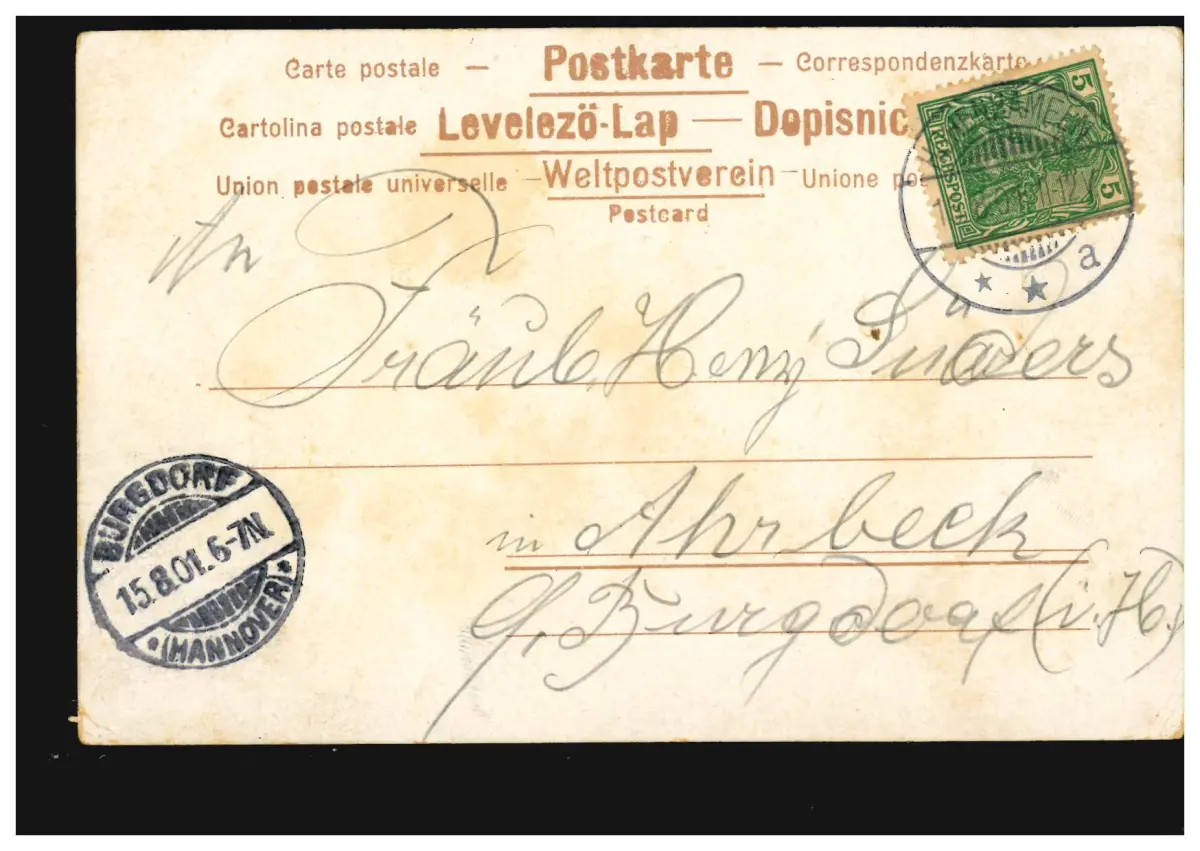 Carte postale — Postkarte — Correspondenzkarte
Cartolina postale Levelező-Lap — Dopisnic
Union postale universelle — Weltpostverein — Unione pos
Postcard
5 REICHSPOST 5
11-12V
* * a
An
Fräul. Henny Lüders
in Ahrbeck
b/ Burgdorf (i. H.)
BURGDORF
15.8.01. 6-7N.
* (HANNOVER) *